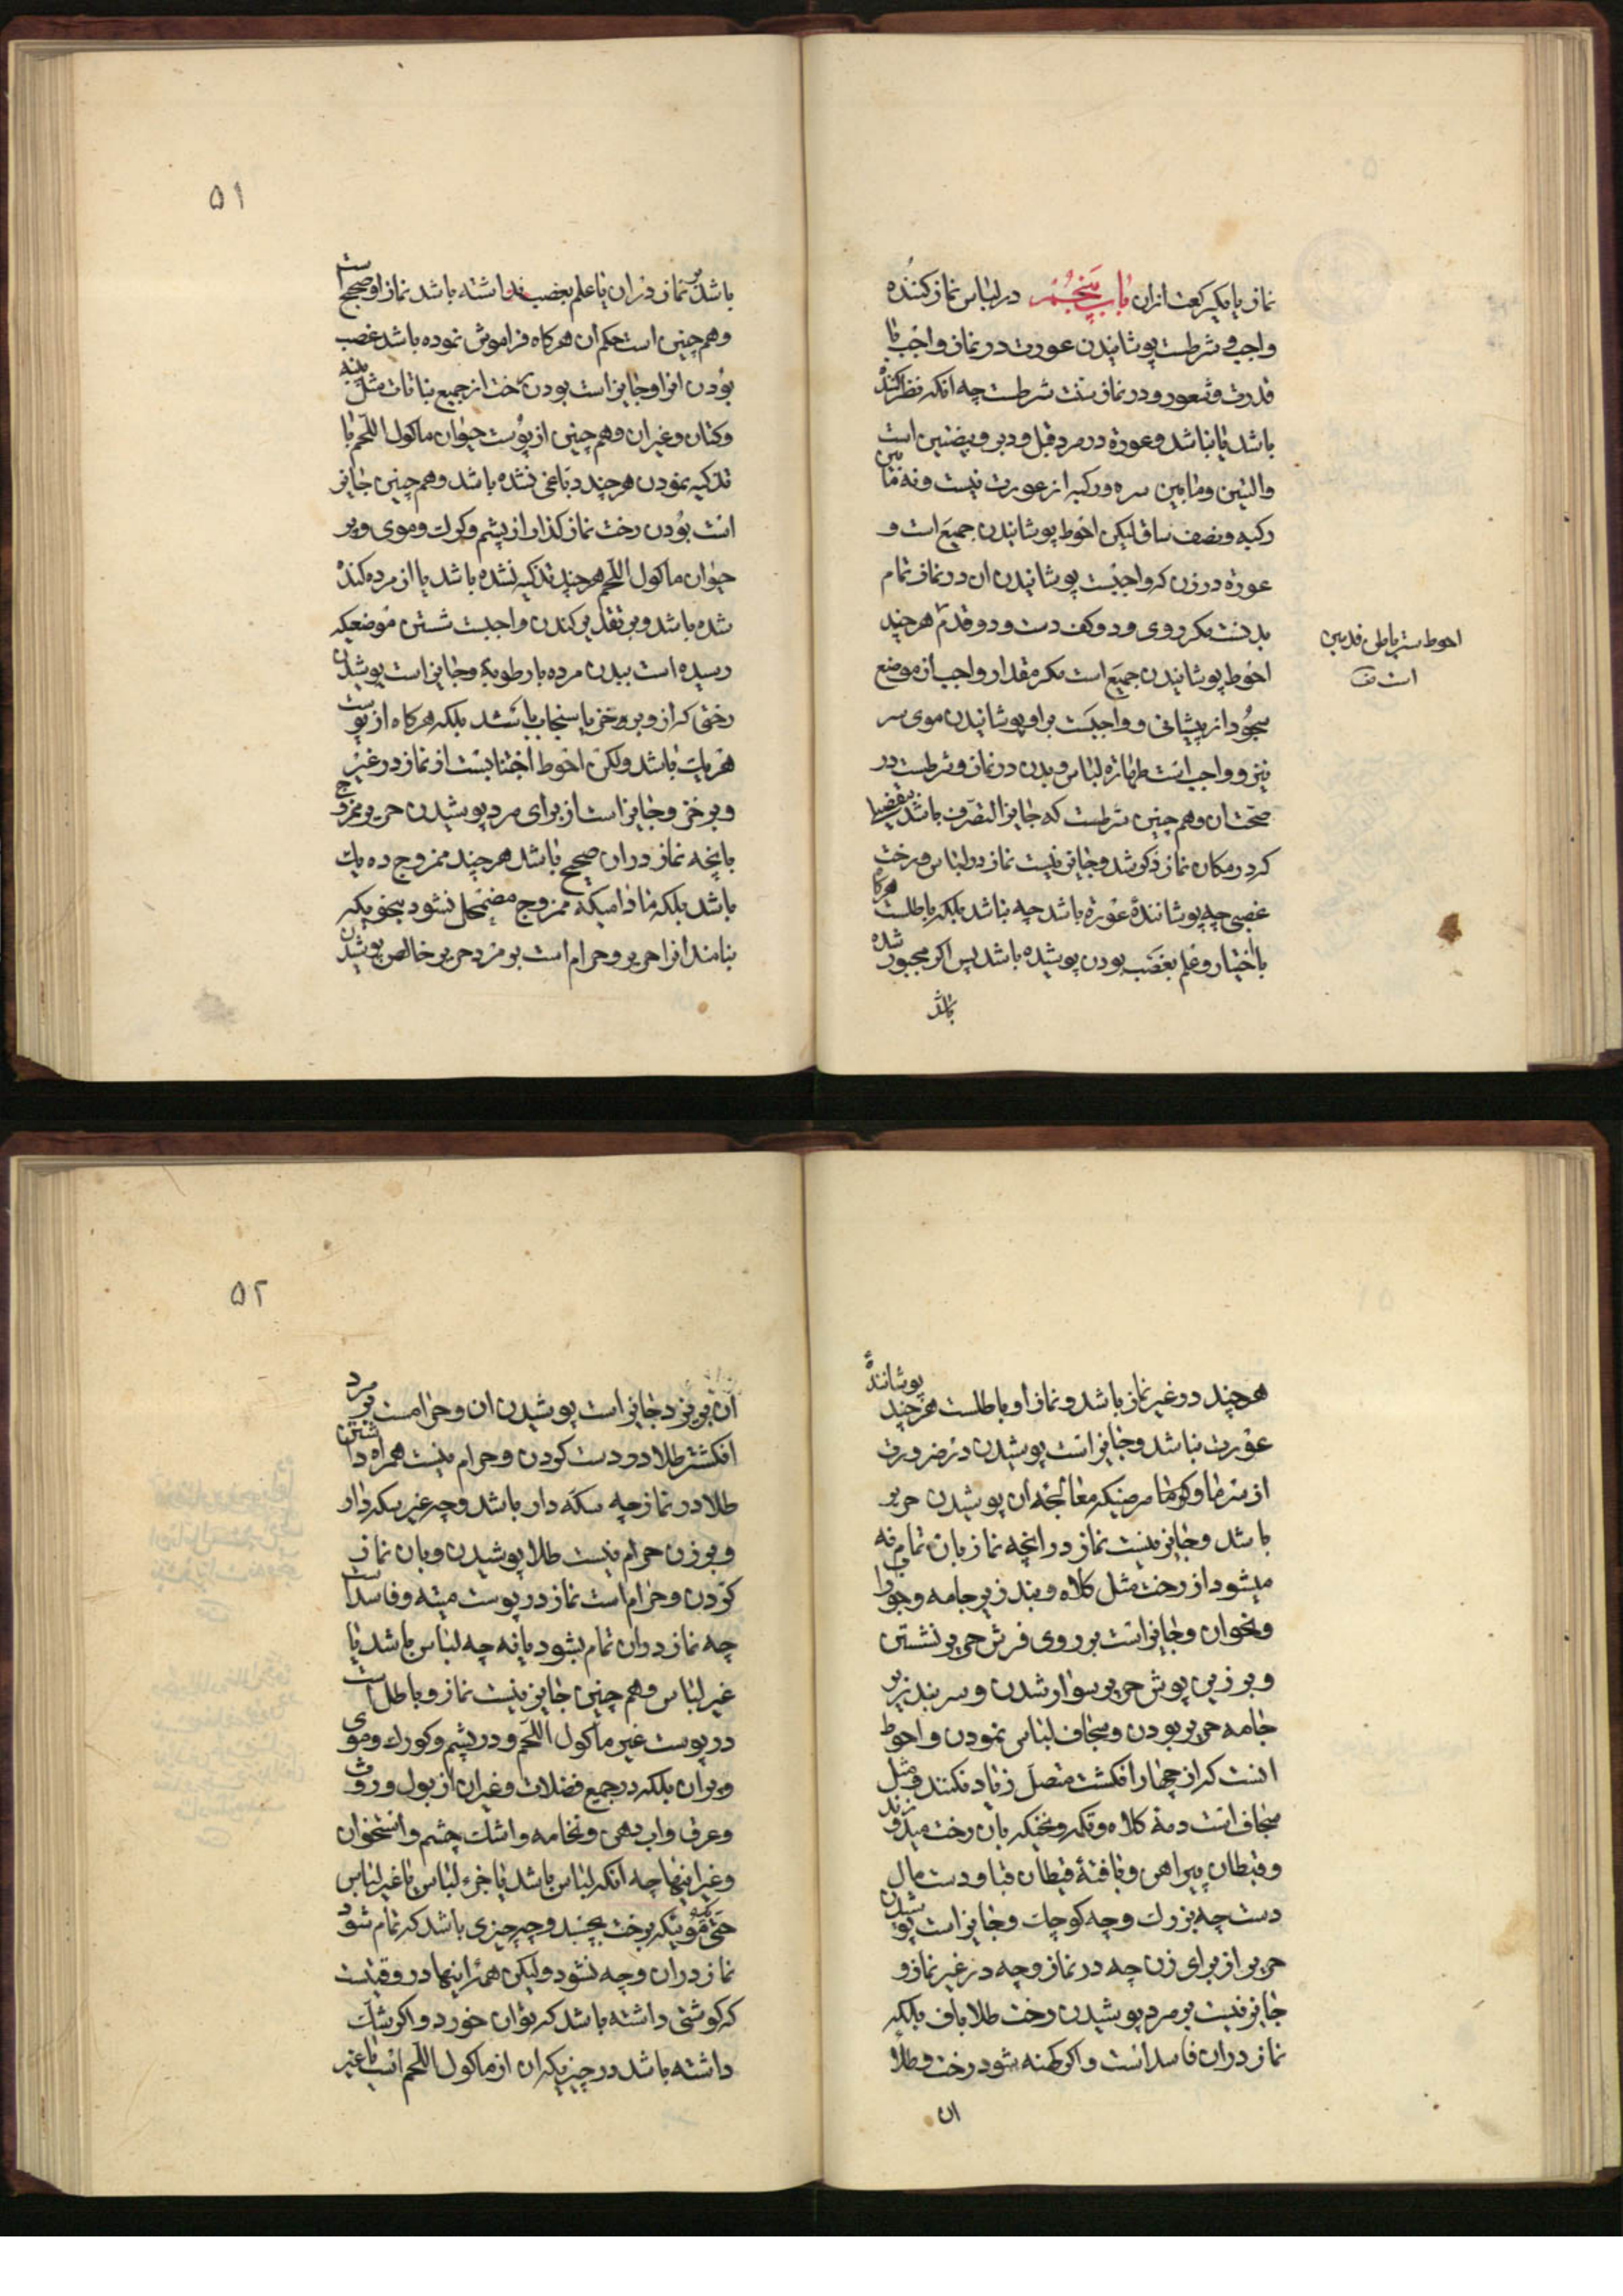 نماز یا یکرکعت ازان باب پنجم در لباس نماز کننده
واجب و شرطست پوشانیدن عورت در نماز واجب با
قدرت و شعور و در نماز سنت شرطست چه انکه نظر کنندهٔ
باشد یا نباشد و عورة در مرد قبل و دبر و بیضتین است
والیتین و مابین سره و رکبه از عورت نیست و نه مابین
رکبه و نصف ساق لیکن احوط پوشانیدن جمیع است و
عورة در زن که واجبست پوشانیدن ان در نماز تمام
بدنست مکر روی و دو کف دست و دو قدم هر چند
احوط پوشانیدن جمیع است مکر مقدار واجب از موضع
سجود از پیشانی و واجبست بر او پوشانیدن موی سر
نیز و واجب است طهارة لباس و بدن در نماز و شرطست در
صحت ان و هم چنین شرطست که جایز التصرف باشد بتفصیلی
که در مکان نماز ذکر شد و جایز نیست نماز در لباس و رخت
غصبی چه پوشانندهٔ عورة باشد چه نباشد بلکه باطلست هر کاه
باختیار و علم بغصب بودن پوشیده باشد پس اکر مجبور شده
باشد
احوط ستر باطن قدمین
است
۵۱
باشد بر نماز دران یا علم بغصب نداشته باشد نماز او صحیح است
و هم چنین است حکم ان هر کاه فراموش نموده باشد غصب
بودن انرا و جایز است بودن رخت از جمیع نباتات مثل پنبه
و کتان و غیر ان و هم چنین از پوست حیوان ماکول اللحم با
تذکیه نمودن هر چند دباغی نشده باشد و هم چنین جایز
است بودن رخت نماز کذار از پشم و کرک و موی و پر
حیوان ماکول اللحم هر چند تذکیه نشده باشد یا از مرده کنده
شده باشد و بر تقدیر کندن واجبست شستن موضعیکه
رسیده است ببدن مرده با رطوبة و جایز است پوشیدن
رختی که از وبر و خز یا سنجاب باشد بلکه هر کاه از پوست
هر یک باشد ولکن احوط اجتنابست از نماز در غیر
وبر خز و جایز است از برای مرد پوشیدن حریر ممزوج
بانچه نماز دران صحیح باشد هر چند ممزوج ده یک
باشد بلکه مادامیکه ممزوج مضمحل نشود بنحویکه
بنامند انرا حریر و حرام است بر مرد حریر خالص پوشیدن
هر چند در غیر نماز باشد و نماز او باطلست هر چند پوشانندهٔ
عورت نباشد و جایز است پوشیدن در ضرورت
از سرما و کرما و مرضیکه معالجهٔ ان پوشیدن حریر
باشد و جایز نیست نماز در انچه نماز بان تمام نه
میشود از رخت مثل کلاه و بند زیر جامه و جوراب
و نحو ان و جایز است بر روی فرش حریر نشستن
و بر زین پوش حریر سوار شدن و سر بند زیر
جامه حریر بودن و سجاف لباس نمودن و احوط
انست که از چهار انکشت متصل زیاد نکنند و مثل
سجاف است دمهٔ کلاه و تکمه و نخیکه بان رخت میدوزند
و قیطان پیراهن و بافتهٔ قیطان قبا و دست مال
دست چه بزرک و چه کوچک و جایز است پوشیدن
حریر از برای زن چه در نماز و چه در غیر نماز و
جایز نیست بر مرد پوشیدن رخت طلا باف بلکه
نماز دران فاسد است و اکر کهنه شود رخت و طلا
ان
۵۲
ان بریزد جایز است پوشیدن ان و حرامست بر مرد
انکشتر طلا در دست کردن و حرام نیست همراه داشتن
طلا در نماز چه سکه دار باشد و چه غیر سکه دار
و بر زن حرام نیست طلا پوشیدن و بان نماز
کردن و حرام است نماز در پوست میته و فاسد است
چه نماز دران تمام بشود یا نه چه لباس باشد یا
غیر لباس و هم چنین جایز نیست نماز و باطل است
در پوست غیر ماکول اللحم و در پشم و کورک و موی
و پر ان بلکه در جمیع فضلات و غیر ان از بول و روث
و عرق و اب دهن و نخامه و اشک چشم و استخوان
و غیر اینها چه انکه لباس باشد یا جزء لباس یا غیر لباس
حتی موئیکه برخت بچسبد و چه چیزی باشد که تمام شود
نماز دران و چه نشود ولیکن همهٔ اینها در وقتیست
که کوشتی داشته باشد که بتوان خورد و اکر شک
داشته باشد در چیزیکه ان از ماکول اللحم است یا غیر